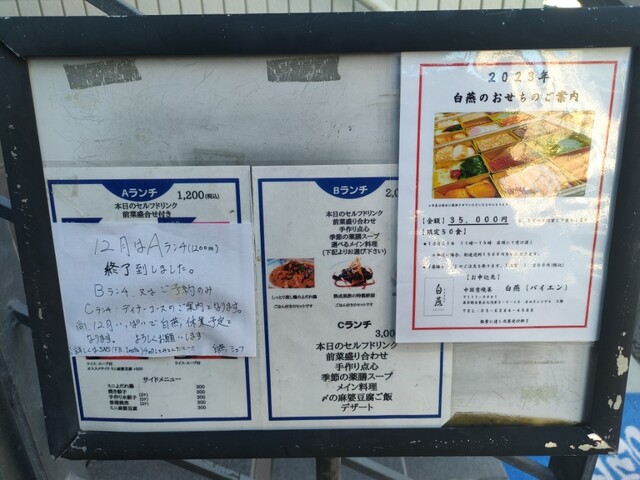 Aランチ 1,200(税込)
本日のセルフドリンク
前菜盛合せ付き
12月はAランチ(1200円)
終了到しました。
Bランチ、又はご予約のみ
Cランチ・ディナーコースのご案内となります。
尚、12月いっぱいで白燕、休業予定と
なります。よろしくお願いします
白燕 シェフ
サイドメニュー
ミニよだれ鶏 300
焼き餃子 300
手作り水餃子 300
300
ミニ麻婆豆腐 300
Bランチ
本日のセルフドリンク
前菜盛り合わせ
手作り点心
季節の薬膳スープ
選べるメイン料理
(下記よりお選び下さい)
ごはん付きのセットです
ごはん付きのセットです
Cランチ
3,000
本日のセルフドリンク
前菜盛り合わせ
手作り点心
季節の薬膳スープ
メイン料理
〆の麻婆豆腐ご飯
デザート
2023年
白燕のおせちのご案内
【金額】35,000円
【限定50食】
【お申込先】
白燕
中国薬喰菜 白燕(バイエン)